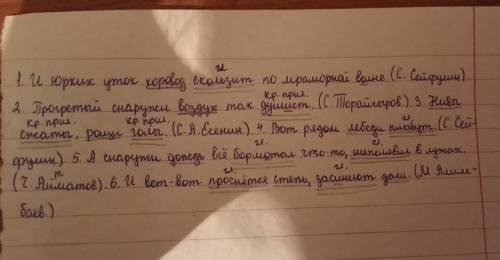 г.
1. И юрких уток хоровод скользит по мраморной волне (С. Сейфулин)
кр. прил.
2. Прогретый снаружи воздух так душист. (С. Торайгыров). 3. Нивы
кр. прил. кр. прил. г.
сжаты, рощи голы. (С. А. Есенин). 4. Вот рядом лебеди плывут. (С. Сей-
г. г.
фулин). 5. А снаружи дождь всё бормотал что-то, шепелявил в лужах.
г. г.
(Ч. Айматов). 6. И вот-вот проснётся степь, засинеют дали. (М. Алим-
баев.)